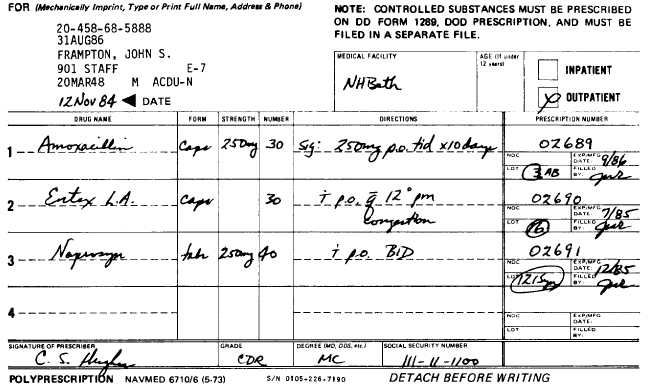 FOR (Mechanically Imprint, Type or Print Full Name, Address & Phone)
20-458-68-5888
31AUG86
FRAMPTON, JOHN S.
901 STAFF E-7
20MAR48 M ACDU-N
12 Nov 84 ◀ DATE
NOTE: CONTROLLED SUBSTANCES MUST BE PRESCRIBED
ON DD FORM 1289, DOD PRESCRIPTION, AND MUST BE
FILED IN A SEPARATE FILE.
MEDICAL FACILITY
NHBeth
AGE (If under
12 years)
INPATIENT
OUTPATIENT
DRUG NAME FORM STRENGTH NUMBER DIRECTIONS PRESCRIPTION NUMBER
1 Amoxacillin Caps 250mg 30 Sig: 250mg p.o. tid x10 days 02689
NDC EXP/MFG DATE: 9/86
LOT FILLED BY:
2 Entex L.A. Caps 30 i p.o. q 12° prn 02690
Congestion
NDC EXP/MFG DATE: 7/85
LOT FILLED BY:
3 Naprosyn tab 250mg 40 i p.o. BID 02691
NDC EXP/MFG DATE: 12/85
LOT FILLED BY:
4
NDC EXP/MFG DATE:
LOT FILLED BY:
SIGNATURE OF PRESCRIBER GRADE DEGREE (MD, DDS, etc.) SOCIAL SECURITY NUMBER
C. S. Hughes CDR MC 111-11-1100
POLYPRESCRIPTION NAVMED 6710/6 (5-73) S/N 0105-226-7190 DETACH BEFORE WRITING